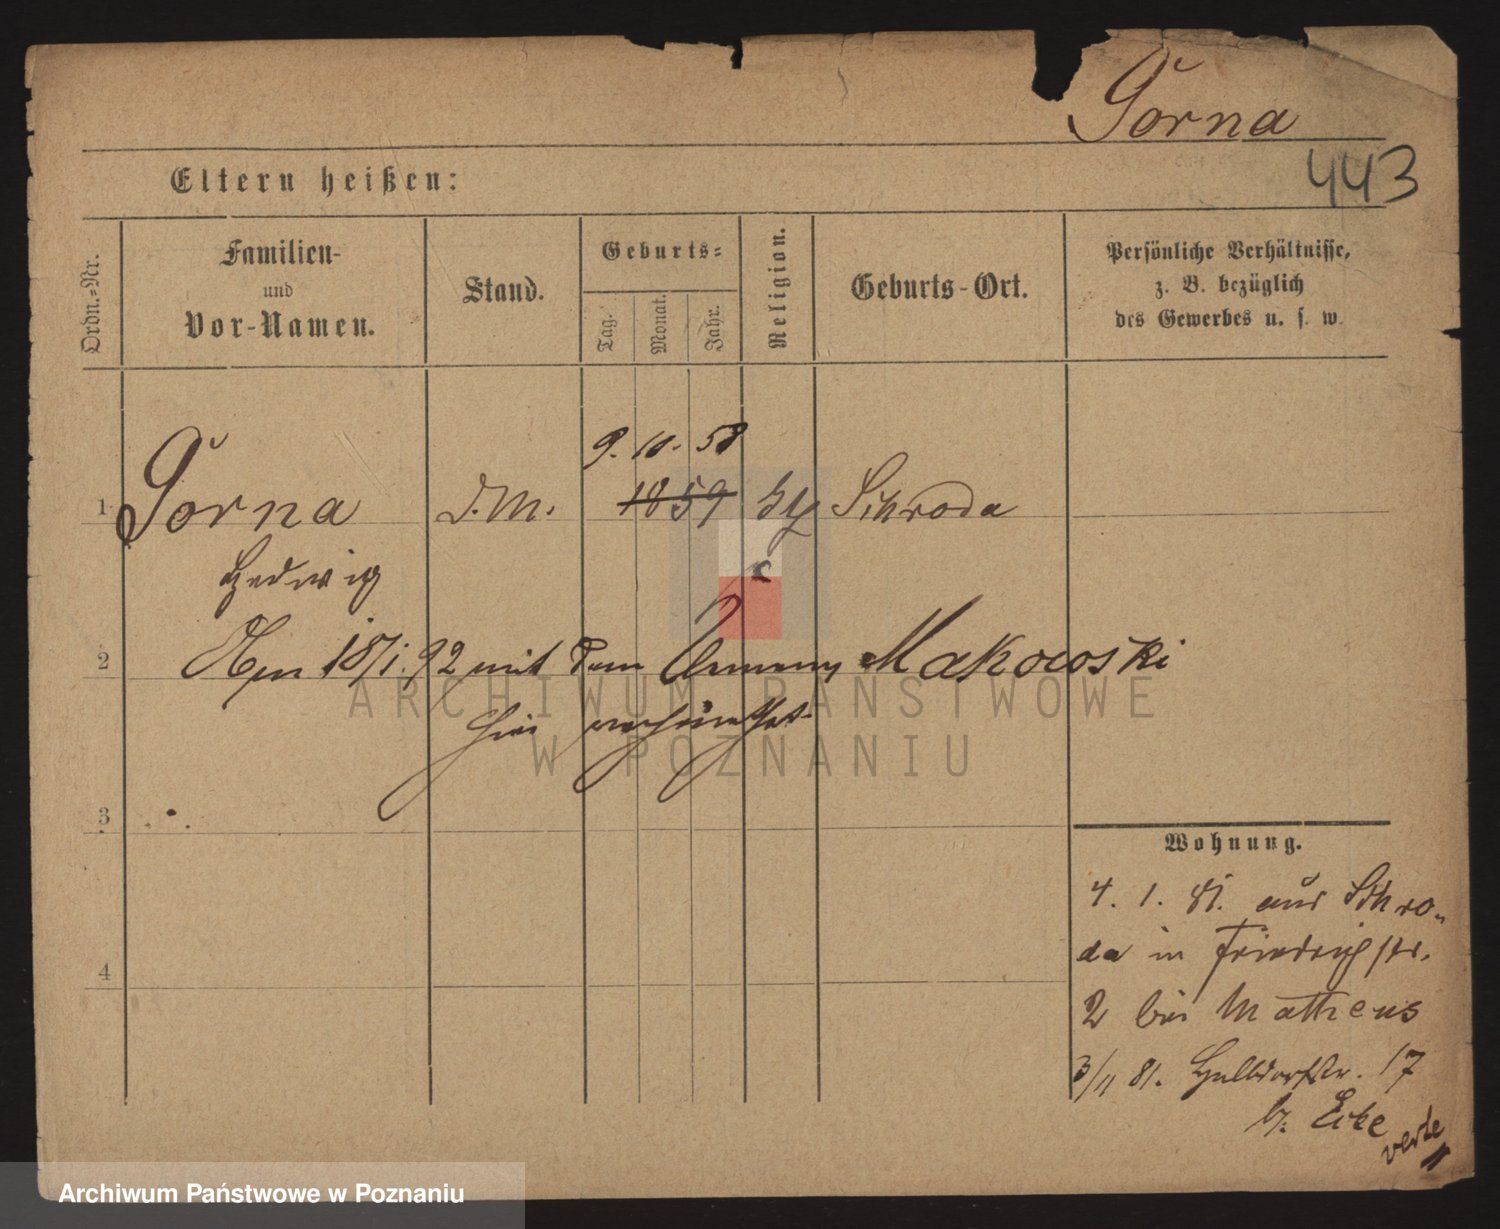 Górna
443
Eltern heißen:
Ordn.-Nr.
Familien-
und
Vor-Namen.
Stand.
Geburts-
Tag.
Monat.
Jahr.
Religion.
Geburts-Ort.
Persönliche Verhältnisse,
z. B. bezüglich
des Gewerbes u. s. w.
9. 10. 58
1 Górna D.M. 1859 Schroda
Hedwig
2 18/1.92 mit dem Makowski
hier
3
4
Wohnung.
4. 1. 81. aus Schro-
da in Friedrichstr.
2 bei Matheus
3/11 81. Halbdorfstr. 17
b. Ecke
verte
ARCHIWUM PAŃSTWOWE
W POZNANIU
Archiwum Państwowe w Poznaniu